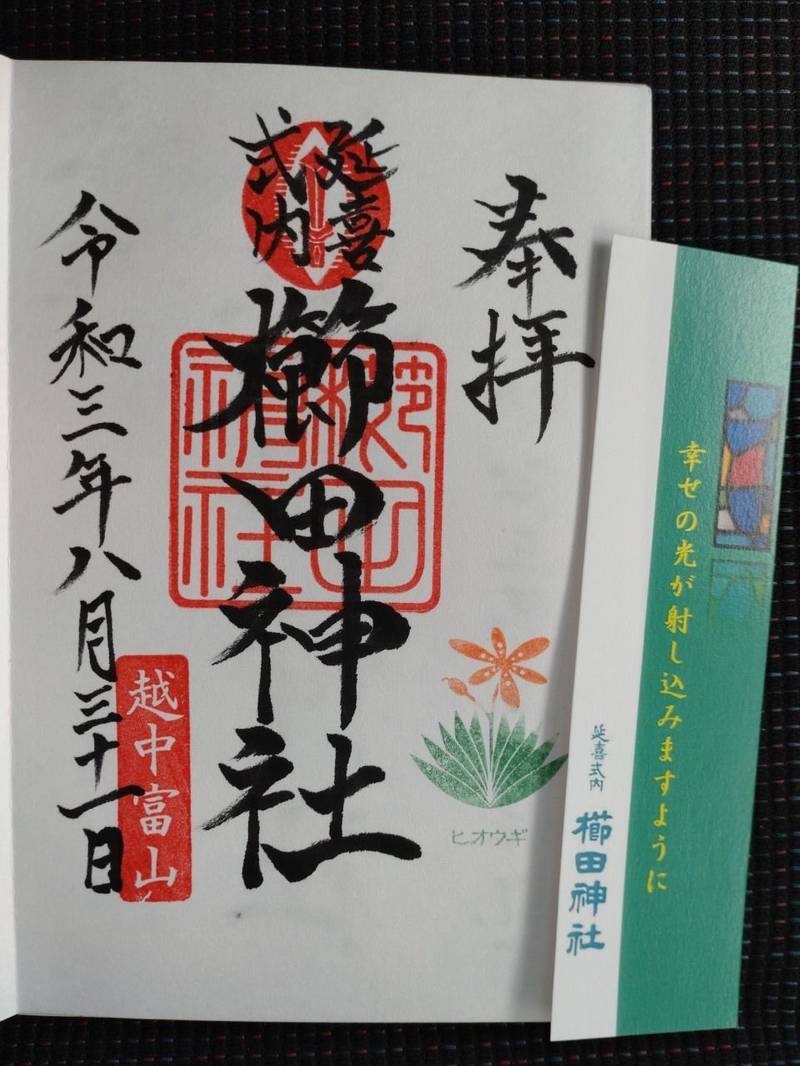 奉拝
延喜
式内
櫛田神社
櫛田
神社
令和三年八月三十一日
越中富山
ヒオウギ
幸せの光が射し込みますように
延喜式内
櫛田神社